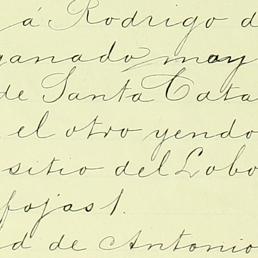 á Rodrigo d
ganado may
de Santa Cata
el otro yendo
sitio del Lobo
fojas 1.
d de Antonio